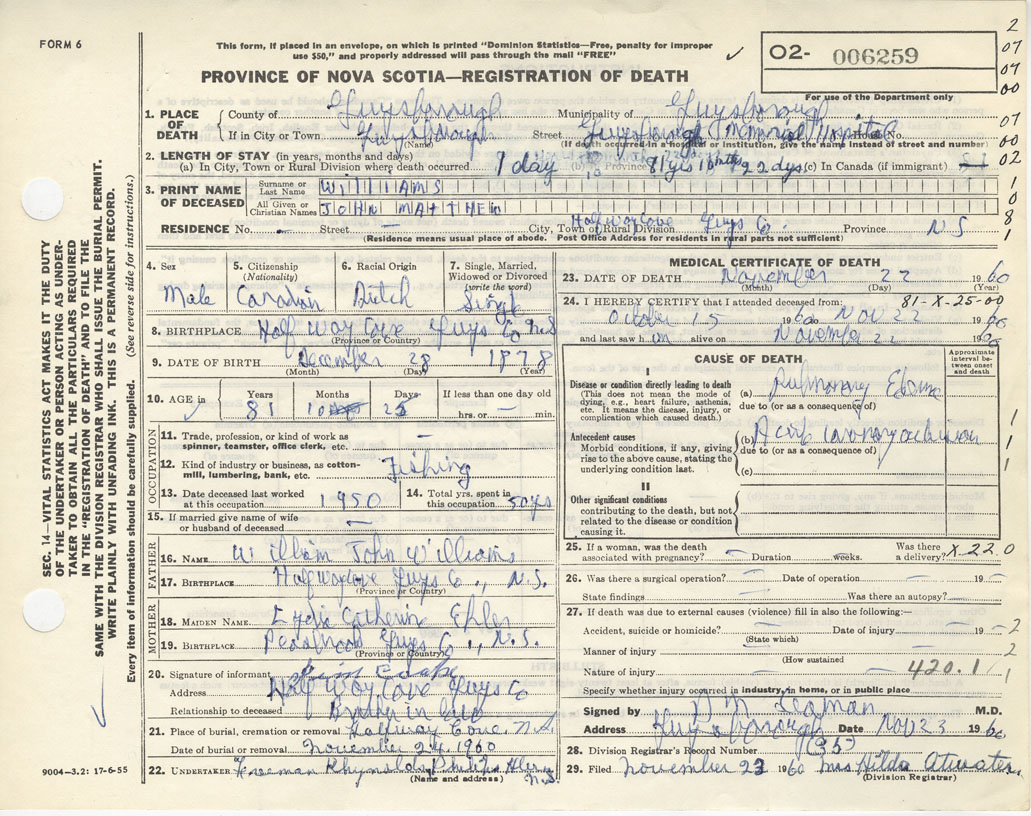 FORM 6
This form, if placed in an envelope, on which is printed "Dominion Statistics—Free, penalty for improper
use $50," and properly addressed will pass through the mail "FREE"
✓
O2- 006259
For use of the Department only
2
07
07
00
07
00
02
1
0
8
1
PROVINCE OF NOVA SCOTIA—REGISTRATION OF DEATH
SEC. 14—VITAL STATISTICS ACT MAKES IT THE DUTY
OF THE UNDERTAKER OR PERSON ACTING AS UNDER-
TAKER TO OBTAIN ALL THE PARTICULARS REQUIRED
IN THE "REGISTRATION OF DEATH" AND TO FILE THE
SAME WITH THE DIVISION REGISTRAR WHO SHALL ISSUE THE BURIAL PERMIT.
WRITE PLAINLY WITH UNFADING INK. THIS IS A PERMANENT RECORD.
Every item of information should be carefully supplied. (See reverse side for instructions.)
1. PLACE OF DEATH
County of Guysborough Municipality of Guysborough
If in City or Town Guysborough Street Guysborough Memorial Hospital House No.
(Name) (If death occurred in a hospital or institution, give the name instead of street and number)
2. LENGTH OF STAY (in years, months and days)
(a) In City, Town or Rural Division where death occurred 1 day (b) Province 81 yrs 10 mths 22 dys (c) In Canada (if immigrant)
3. PRINT NAME OF DECEASED
Surname or Last Name WILLIAMS
All Given or Christian Names JOHN MATTHEW
RESIDENCE No. - Street — City, Town or Rural Division Halfway Cove Guys Co. Province N S
(Residence means usual place of abode. Post Office Address for residents in rural parts not sufficient)
4. Sex
Male
5. Citizenship (Nationality)
Canadian
6. Racial Origin
Dutch
7. Single, Married, Widowed or Divorced (write the word)
Single
8. BIRTHPLACE Half Way Cove Guys Co N.S
(Province or Country)
9. DATE OF BIRTH December 28 1878
(Month) (Day) (Year)
10. AGE in Years Months Days If less than one day
✓ 81 10 25 hrs. or — min.
OCCUPATION
11. Trade, profession, or kind of work as spinner, teamster, office clerk, etc. —
12. Kind of industry or business, as cotton-mill, lumbering, bank, etc. Fishing
13. Date deceased last worked at this occupation 1950
14. Total yrs. spent in this occupation 50 yrs
15. If married give name of wife or husband of deceased —
FATHER
16. NAME William John Williams
17. BIRTHPLACE Halfway Cove Guys Co., N.S.
(Province or Country)
MOTHER
18. MAIDEN NAME Lydia Catherine Ehler
19. BIRTHPLACE Guys Co., N.S.
(Province or Country)
20. Signature of informant
Address Half Way Cove Guys Co
Relationship to deceased Brother in law
21. Place of burial, cremation or removal Halfway Cove. N.S.
Date of burial or removal November 24, 1960
22. UNDERTAKER Freeman
(Name and address) N.S.
9004-3.2: 17-6-55
MEDICAL CERTIFICATE OF DEATH
23. DATE OF DEATH November 22 1960
(Month) (Day) (Year)
24. I HEREBY CERTIFY that I attended deceased from: 81-X-25-00
October 15 1960 to Nov 22 1960
and last saw him alive on November 22 1960
CAUSE OF DEATH
Approximate interval between onset and death
I
Disease or condition directly leading to death
(This does not mean the mode of dying, e.g., heart failure, asthenia, etc. It means the disease, injury, or complication which caused death.)
(a) Pulmonary Edema
due to (or as a consequence of)
Antecedent causes
Morbid conditions, if any, giving rise to the above cause, stating the underlying condition last.
(b) Acute coronary occlusion
due to (or as a consequence of)
(c)
1
1
1
II
Other significant conditions
contributing to the death, but not related to the disease or condition causing it.
25. If a woman, was the death associated with pregnancy? — Duration — weeks. Was there a delivery? X-220
26. Was there a surgical operation? — Date of operation — 19 —
State findings — Was there an autopsy? —
27. If death was due to external causes (violence) fill in also the following:—
Accident, suicide or homicide? — Date of injury — 19 — 2
(State which)
Manner of injury — 2
(How sustained
Nature of injury — 420.1 / 1
Specify whether injury occurred in industry, in home, or in public place
Signed by Seaman M.D.
Address Guysborough Date Nov 23 1960
28. Division Registrar's Record Number (35)
29. Filed November 23 1960 Mrs Hilda Atwater
(Division Registrar)